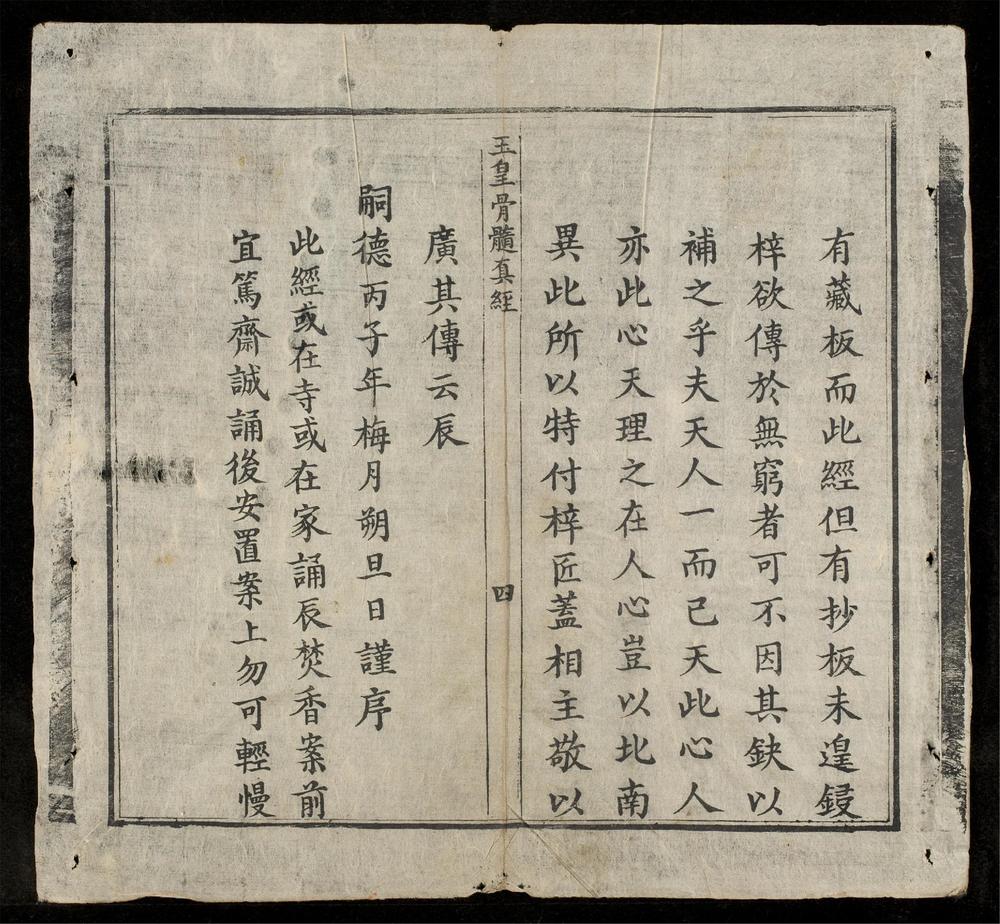 有藏板而此經但有抄板未遑鋟
梓欲傳於無窮者可不因其缺以
補之乎夫天人一而已天此心人
亦此心天理之在人心豈以北南
異此所以特付梓匠蓋相主敬以
玉皇骨髓真經
四
廣其傳云辰
嗣德丙子年梅月朔旦日謹序
此經或在寺或在家誦辰焚香案前
宜篤齋誠誦後安置案上勿可輕慢